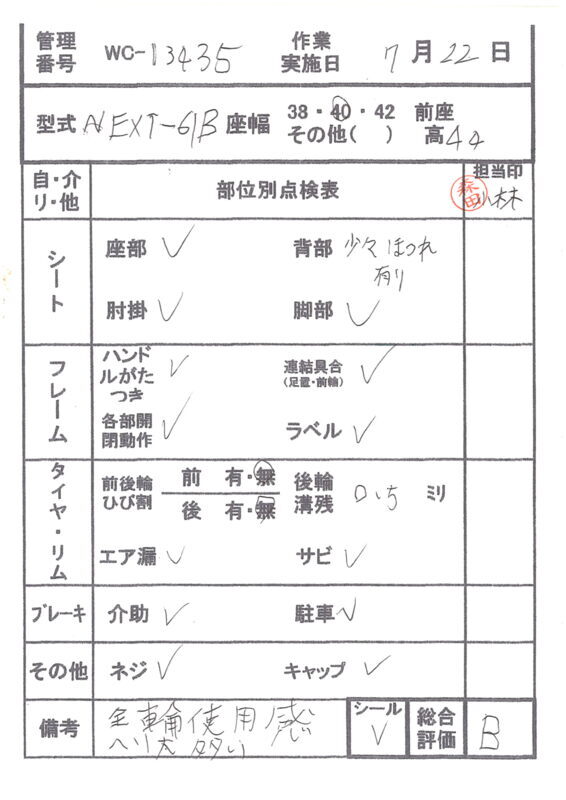 管理番号 WC-13435 作業実施日 7月22日
型式 NEXT-61B 座幅 38・40・42 その他( ) 前座高 44
自・介リ・他 部位別点検表 担当印
森田 小林
シート 座部 ✓ 背部 少々ほつれ有り
肘掛 ✓ 脚部 ✓
フレーム ハンドルがたつき ✓ 連結具合(足置・前輪) ✓
各部開閉動作 ✓ ラベル ✓
タイヤ・リム 前後輪ひび割 前 有・無 後輪溝残 ミリ
後 有・無
エア漏 ✓ サビ ✓
ブレーキ 介助 ✓ 駐車 ✓
その他 ネジ ✓ キャップ ✓
備考 全輪使用感 シール ✓ 総合評価 B